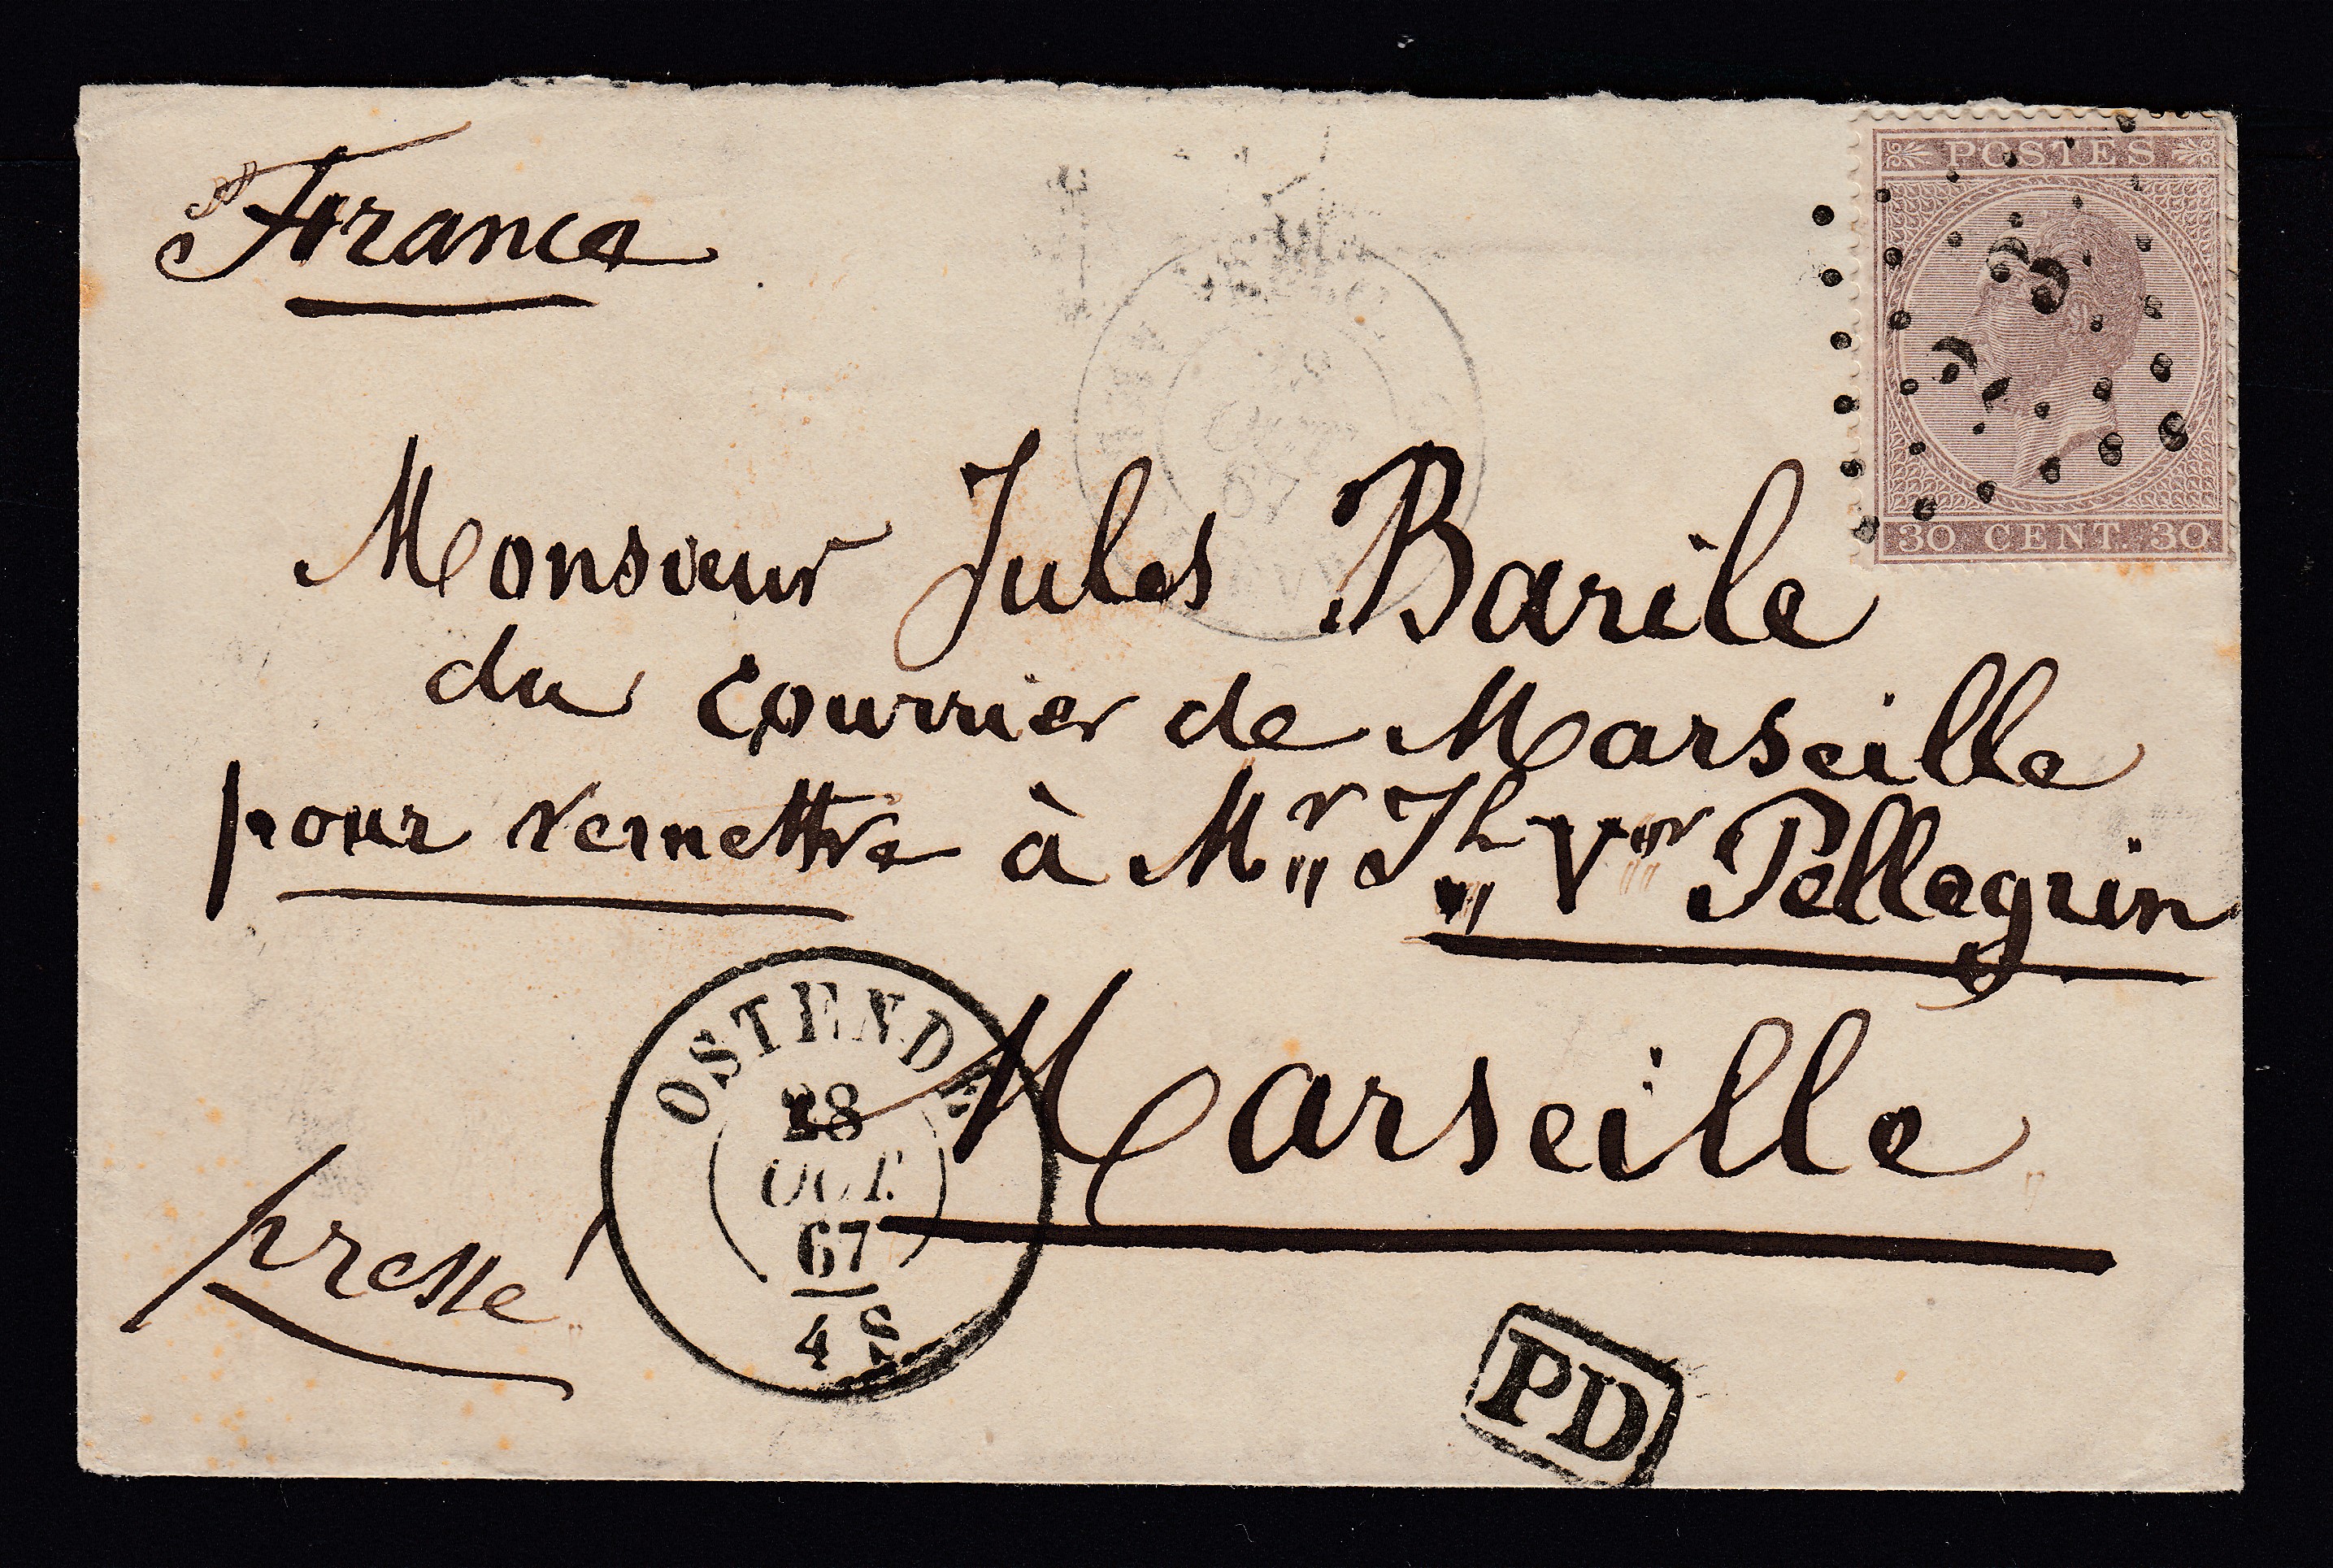 France
POSTES
30 CENT. 30
Monsieur Jules Barile
du Courrier de Marseille
pour remettre à Mr Th Vor Pellegrin
Marseille
presse
OSTENDE
28
OCT.
67
4 S
PD
67